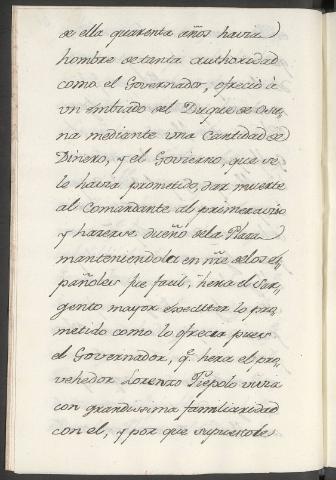 de ella quarenta años havia
hombre de tanta authoridad
como el Governador, ofreciò à
vn embiado del Duque de Osu-
na mediante vna Cantidad de
Dinero, y el Govierno, que se
le havia prometido, dar muerte
al Comandante al primer aviso
y hacerse dueño de la Plaza
manteniendola en nre de los es-
pañoles fue facil, hera el Sar-
gento mayor executar lo pro-
metido como lo ofrecia pues
el Governador, q.e hera el pro-
vehedor Lorenzo Tiepolo vivia
con grandissima familiaridad
con el, y por que supuesto le